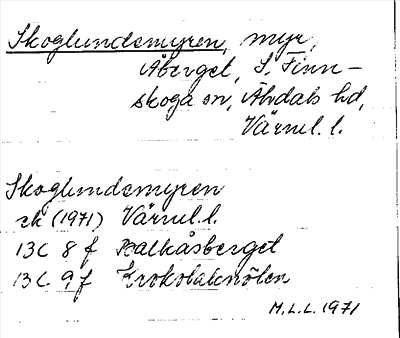 Skoglundsmyren, myr,
Åberget, S. Finn-
skoga sn, Älvdals hd,
Värml. l.
Skoglundsmyren
ek (1971) Värml.l.
13C 8f Balkåsberget
13C 9f Krokolaknölen
M.L.L. 1971